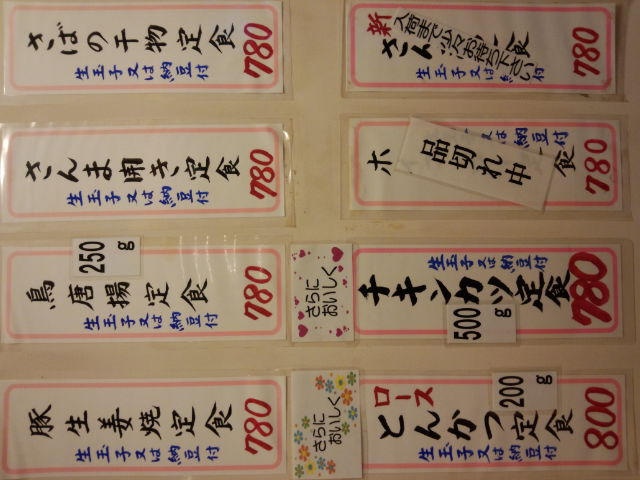 さばの干物定食
生玉子又は納豆付
780
さんま開き定食
生玉子又は納豆付
780
鳥唐揚定食
250g
生玉子又は納豆付
780
豚生姜焼定食
生玉子又は納豆付
780
新
さん
食
入荷まで少々お待ち下さい
生玉子又は納豆付
780
ホ
食
品切れ中
又は納豆付
780
さらに
おいしく
チキンカツ定食
500g
生玉子又は納豆付
780
さらに
おいしく
ロース
とんかつ定食
200g
生玉子又は納豆付
800